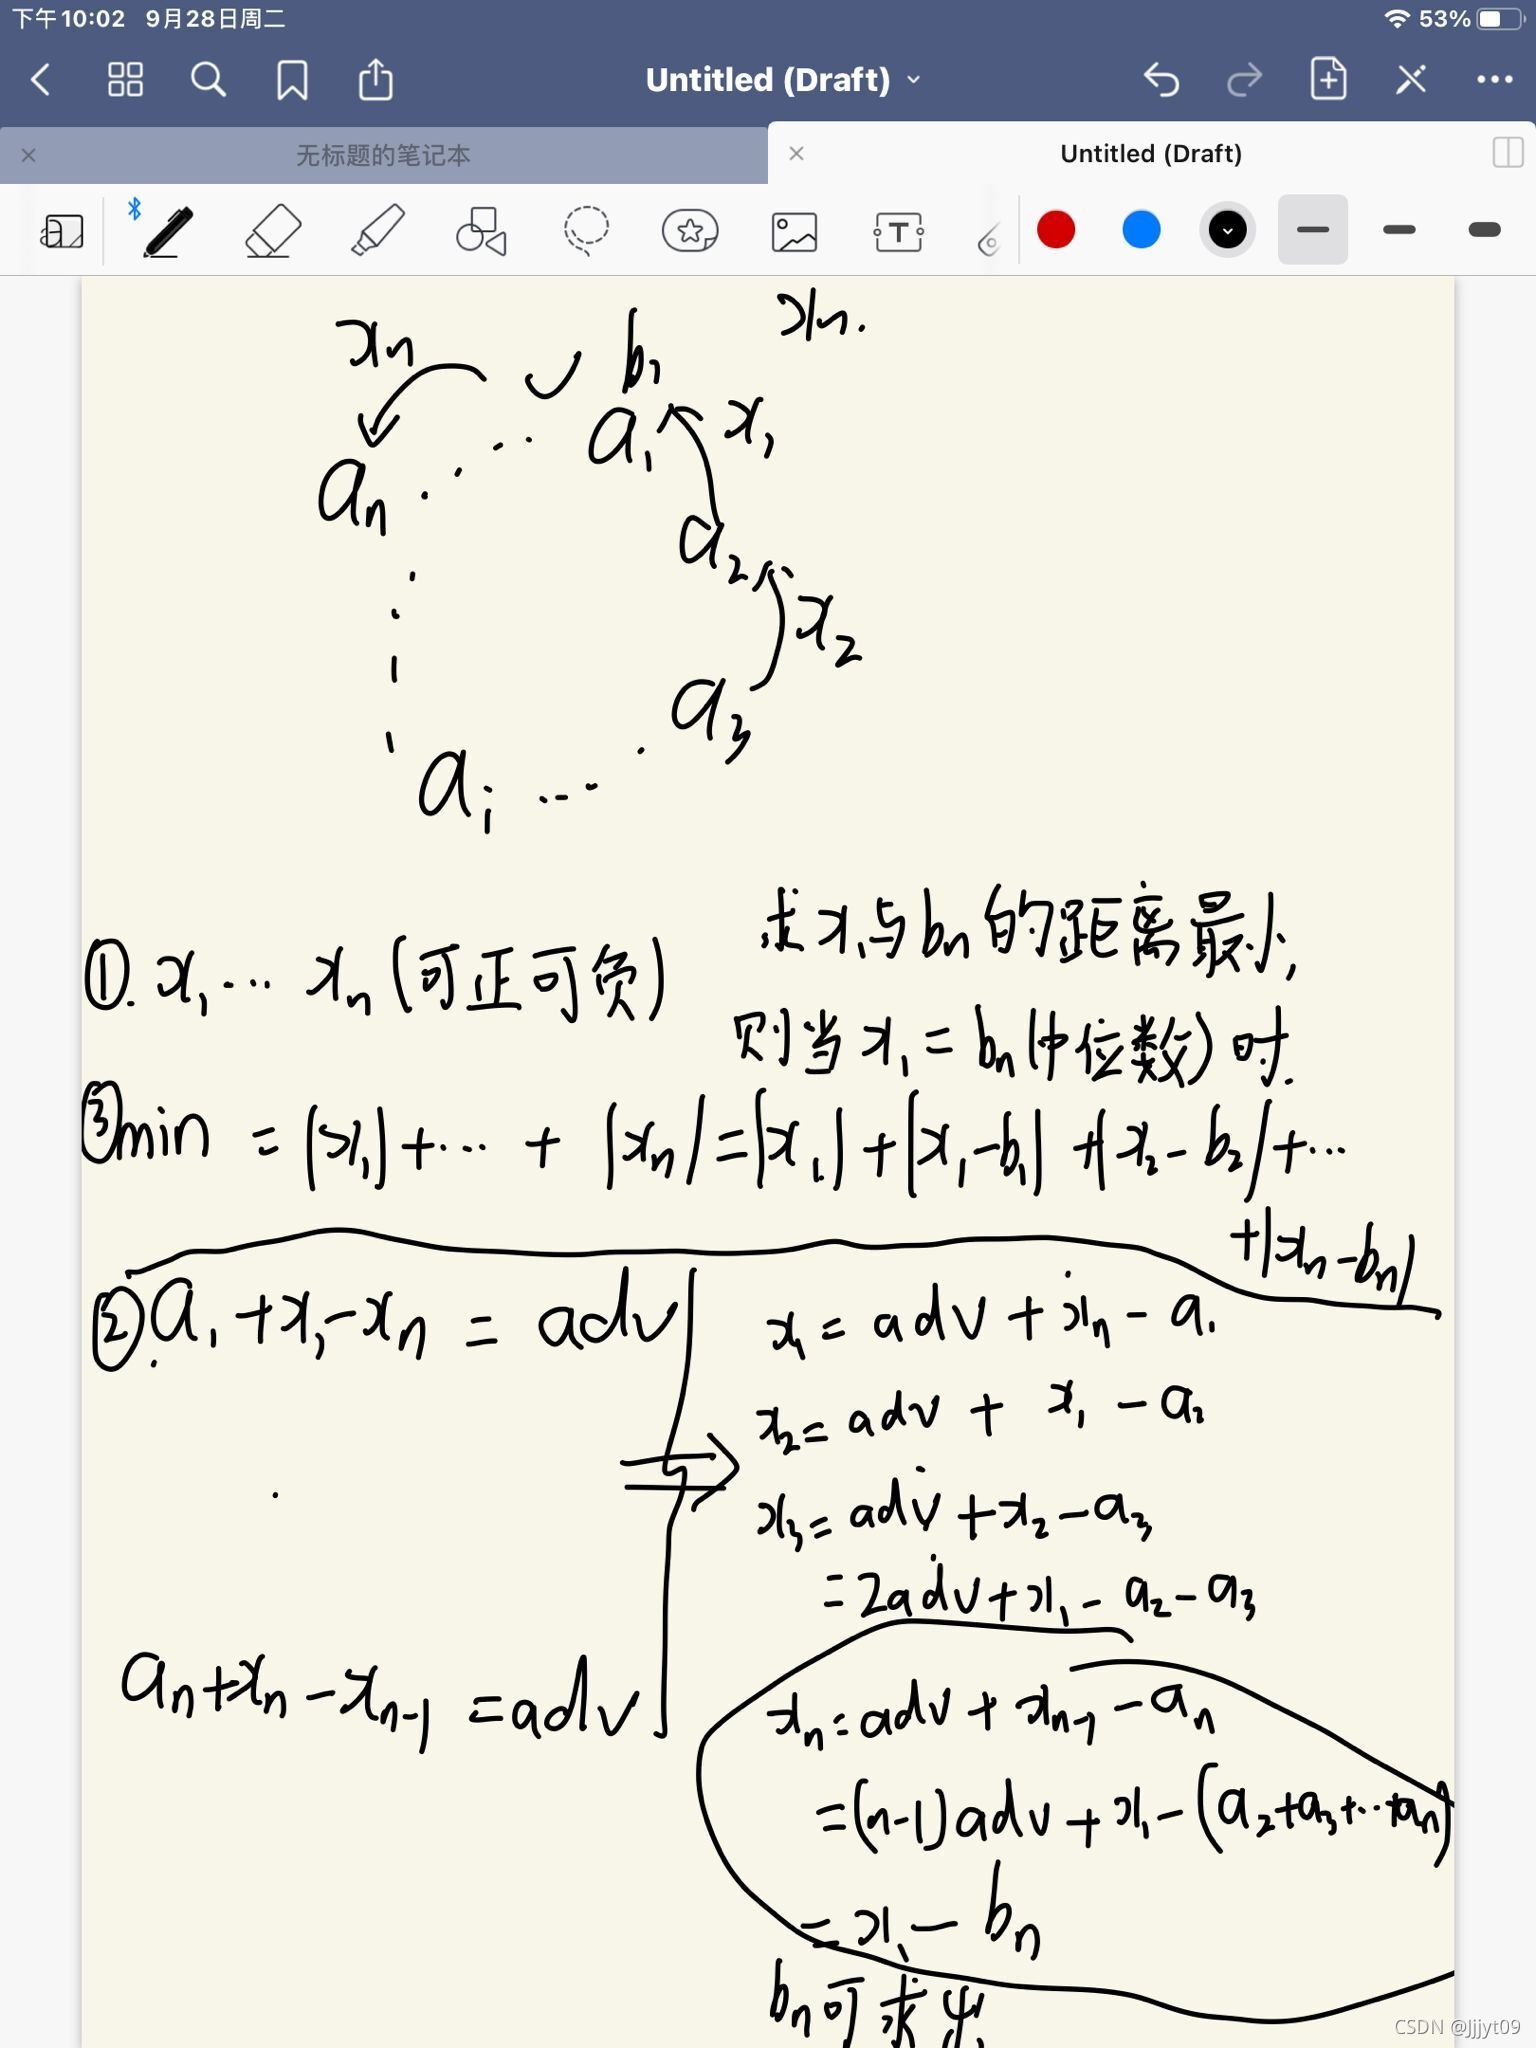 下午10:02 9月28日周二
53%
Untitled (Draft)
无标题的笔记本
Untitled (Draft)
T
xn
b1
xn.
an
a1
x1
a2
x2
a3
ai
①. x1 … xn (可正可负)
求x1与bn的距离最小,
则当x1 = bn(中位数)时.
③min = |x1| + … + |xn| = |x1| + |x1-b1| + |x2-b2| + …
+|xn-bn|
②. a1 + x1 - xn = adv
an + xn - xn-1 = adv
⇒
x1 = adv + xn - a1
x2 = adv + x1 - a2
x3 = adv + x2 - a3
= 2adv + x1 - a2 - a3
xn = adv + xn-1 - an
= (n-1)adv + x1 - (a2+a3+…+an)
= x1 - bn
bn可求出
CSDN @Jjjyt09